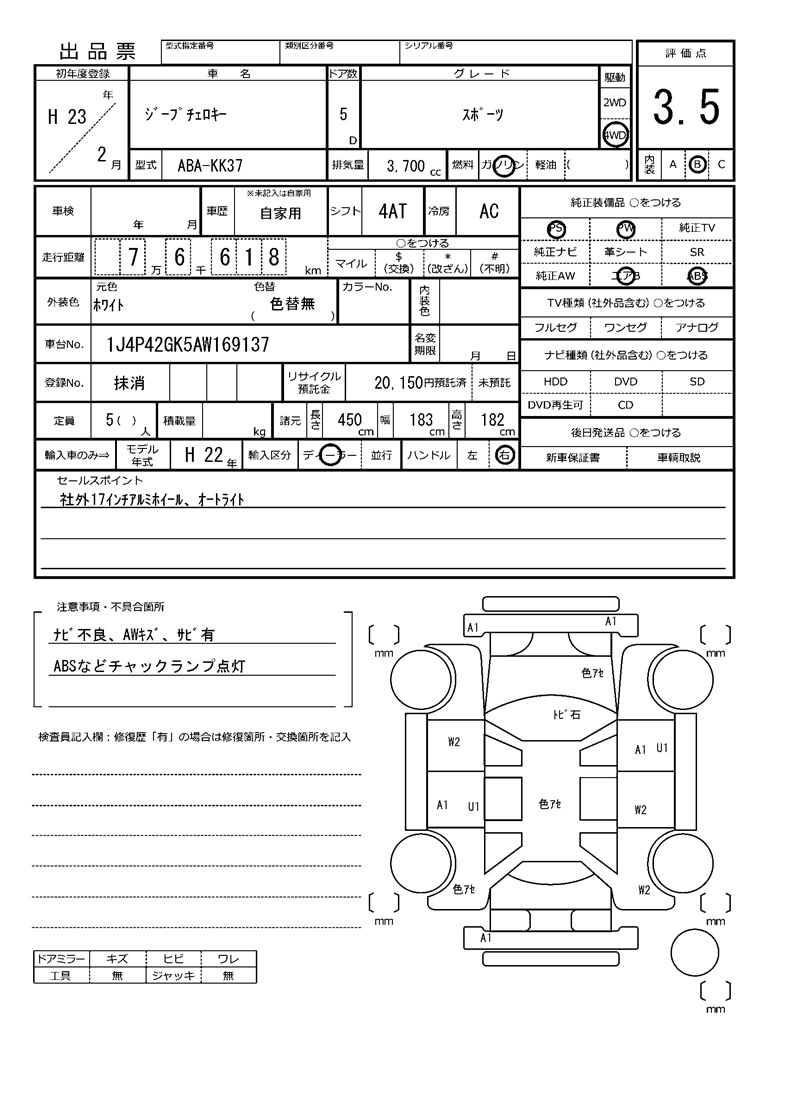 出品票
型式指定番号 類別区分番号 シリアル番号
評価点
3.5
内装 A B C
初年度登録 車名 ドア数 グレード 駆動
H 23 年 2 月 ジープチェロキー 5 D スポーツ 2WD 4WD
型式 ABA-KK37 排気量 3,700 cc 燃料 ガソリン 軽油 ( )
車検 年 月 車歴 ※未記入は自家用 自家用 シフト 4AT 冷房 AC
走行距離 7 万 6 千 6 1 8 km
○をつける
マイル $ (交換) * (改ざん) # (不明)
外装色 元色 ホワイト 色替 色替無 ( ) カラーNo. 内装色
車台No. 1J4P42GK5AW169137 名変期限 月 日
登録No. 抹消 リサイクル預託金 20,150円預託済 未預託
定員 5 ( ) 人 積載量 kg 諸元 長さ 450 cm 幅 183 cm 高さ 182 cm
輸入車のみ⇒ モデル年式 H 22 年 輸入区分 ディーラー 並行 ハンドル 左 右
純正装備品 ○をつける
PS PW 純正TV
純正ナビ 革シート SR
純正AW エアB ABS
TV種類(社外品含む) ○をつける
フルセグ ワンセグ アナログ
ナビ種類(社外品含む) ○をつける
HDD DVD SD
DVD再生可 CD
後日発送品 ○をつける
新車保証書 車輌取説
セールスポイント
社外17インチアルミホイール、オートライト
注意事項・不具合箇所
ナビ不良、AWキズ、サビ有
ABSなどチャックランプ点灯
検査員記入欄：修復歴「有」の場合は修復箇所・交換箇所を記入
A1 A1
mm mm
色アセ
トビ石
W2 A1 U1
A1 U1 色アセ W2
色アセ W2
mm mm
A1
mm
ドアミラー キズ ヒビ ワレ
工具 無 ジャッキ 無